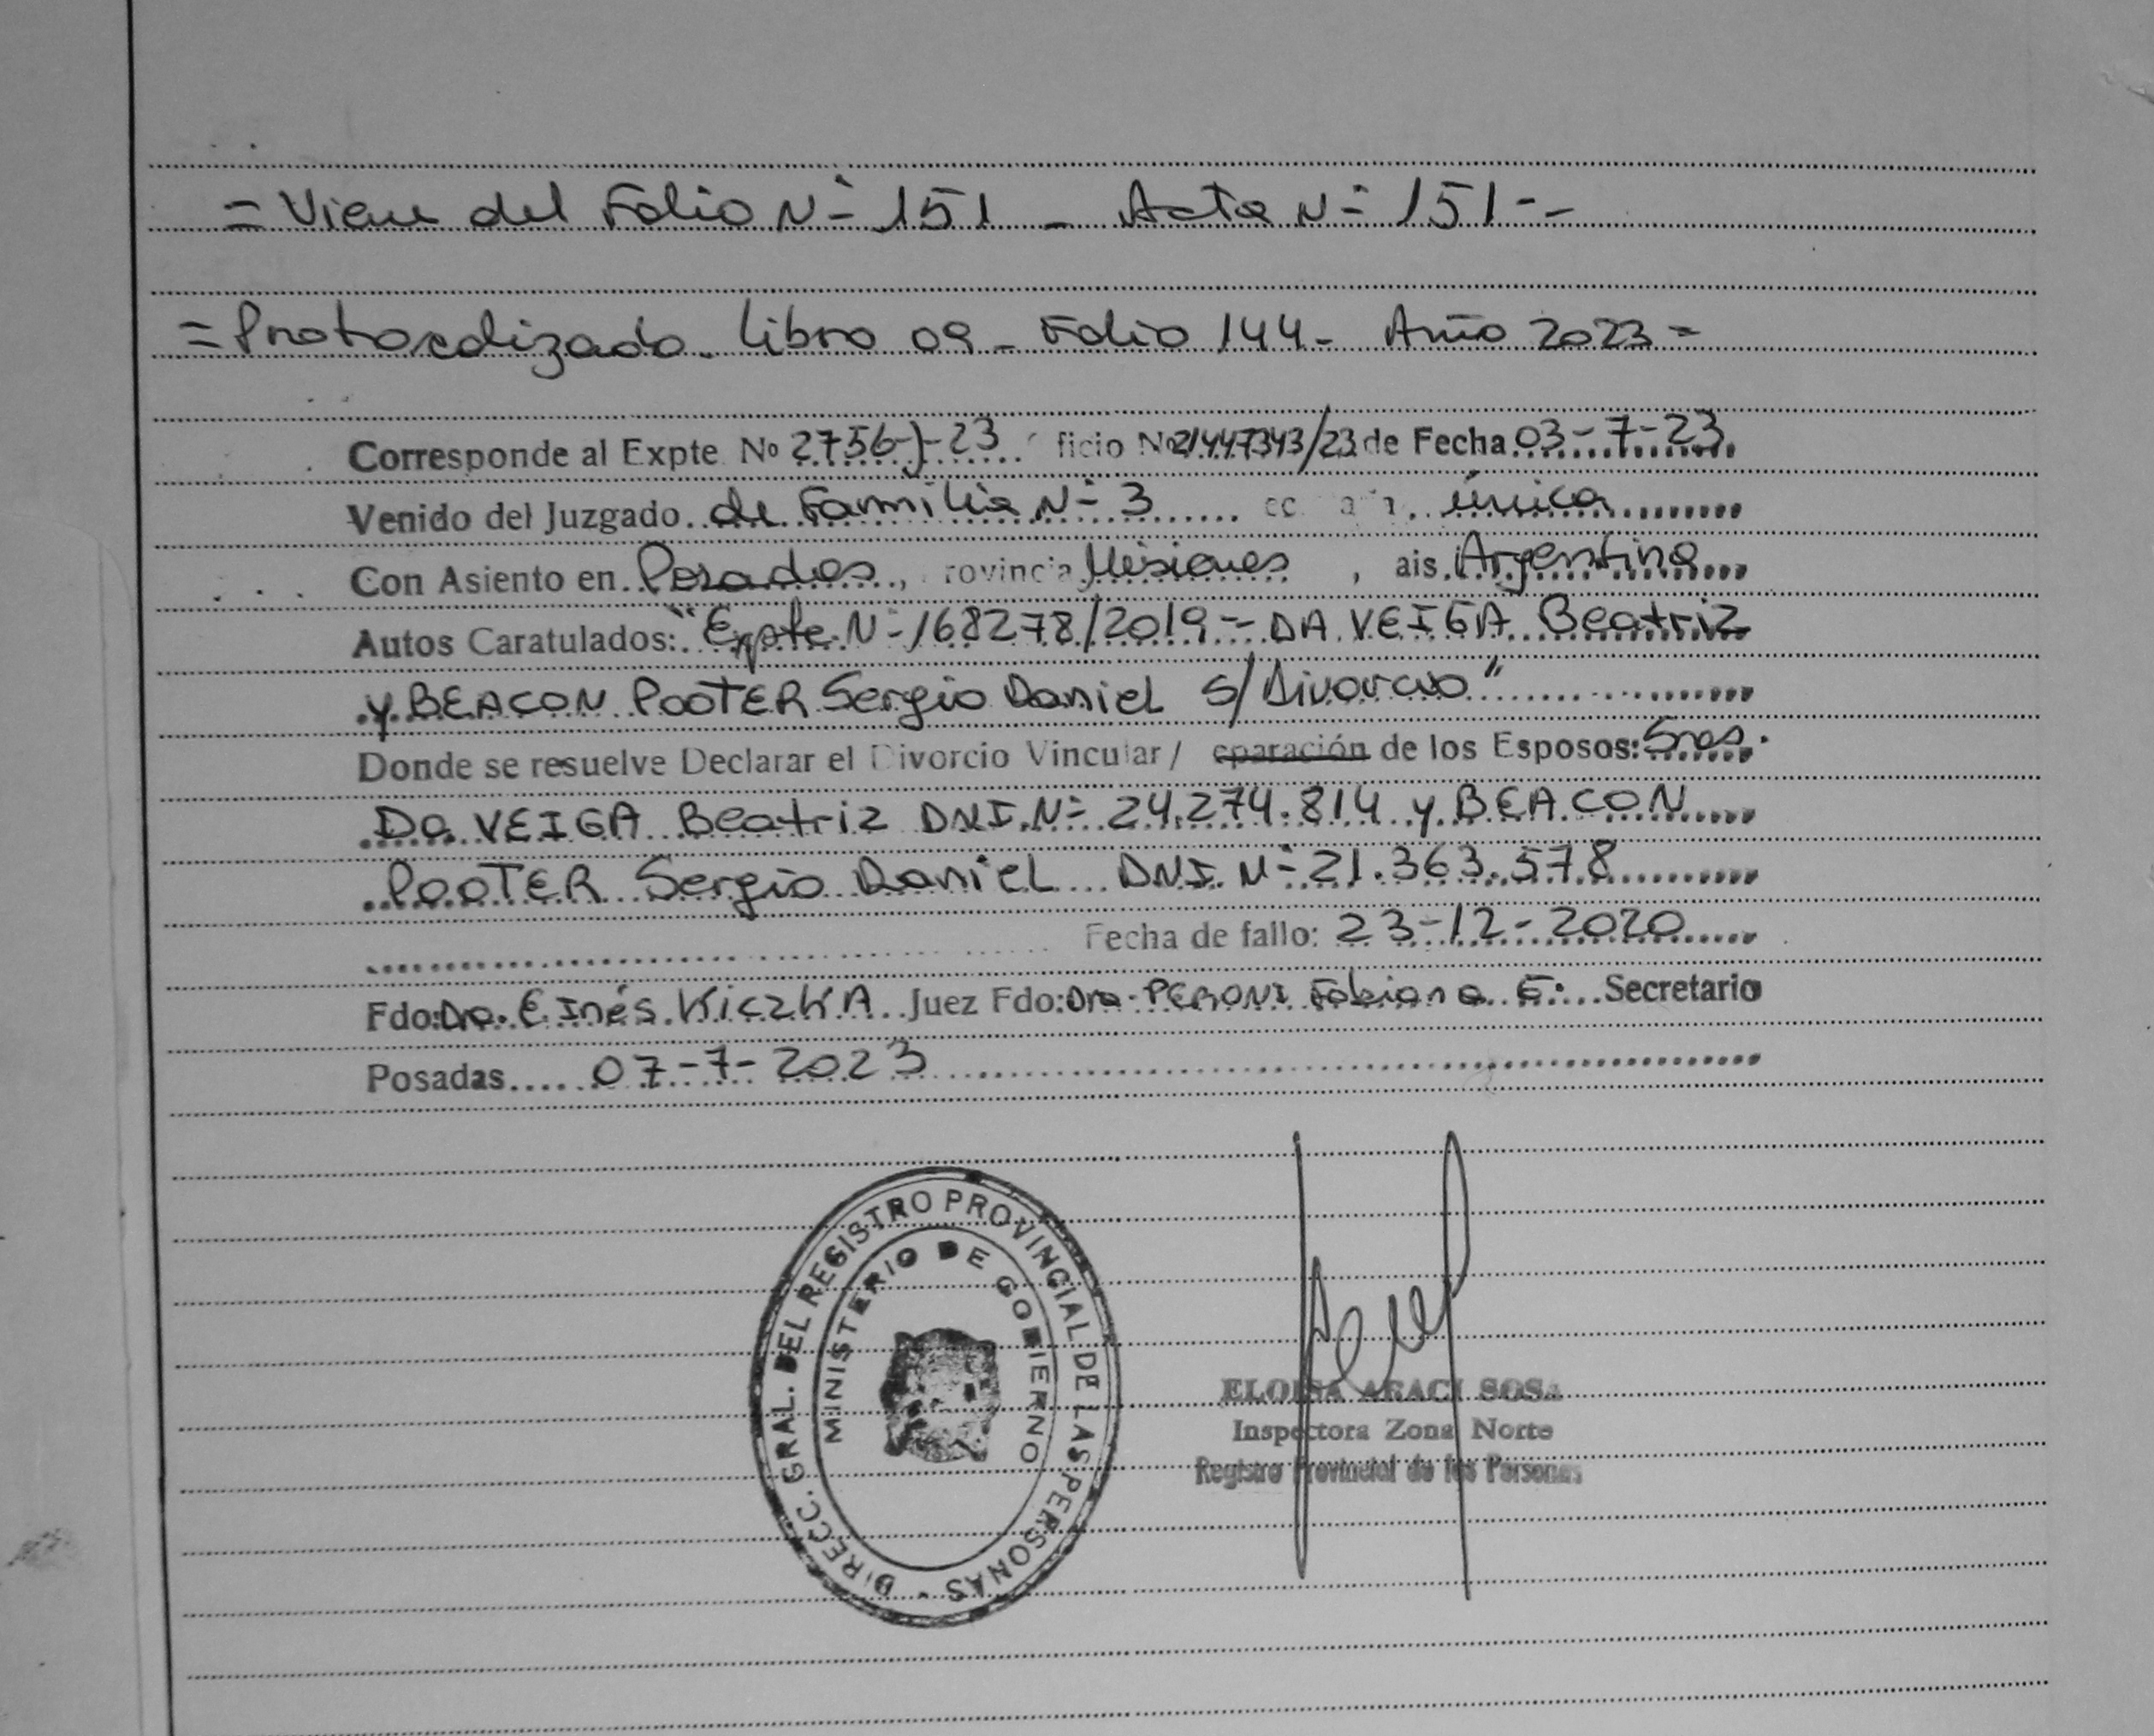 = Viene del Folio Nº 151 - Acta Nº 151 --
= Protocolizado. Libro 09 - Folio 144 - Año 2023 =
Corresponde al Expte Nº 2756-J-23 ficio Nº 21447343/23 de Fecha 03-7-23
Venido del Juzgado de Familia Nº 3 única
Con Asiento en Posadas, rovincia Misiones, ais Argentina
Autos Caratulados: "Expte. Nº 168278/2019 - DA VEIGA Beatriz
y BEACON POOTER Sergio Daniel S/Divorcio"
Donde se resuelve Declarar el Divorcio Vincular / eparación de los Esposos: Sres.
Da VEIGA Beatriz DNI. Nº 24.274.814 y BEACON
POOTER Sergio Daniel DNI. Nº 21.363.578
Fecha de fallo: 23-12-2020
Fdo: Dra. E Inés KiczKA Juez Fdo: Dra. PERONI Fabiana E. Secretario
Posadas 07-7-2023
DIRECC. GRAL. DEL REGISTRO PROVINCIAL DE LAS PERSONAS -
MINISTERIO DE GOBIERNO
ELOISA ARACI SOSA
Inspectora Zona Norte
Registro Provincial de las Personas